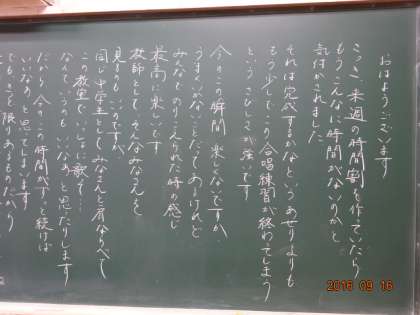 おはようございます
さっき、来週の時間割を作っていたら
もうこんなに時間がないのかと
気付かされました
それは完成するかなというあせりよりも
もう少しでこの合唱練習が終わってしまう
という さびしさが強いです
今のこの瞬間 楽しくないですか
うまくいかないことだってあるけれど
みんなでのりこえられた時の感じ
最高に楽しいです
教師として そんなみなさんを
見るのも いいのですが
同じ中学生としてみなさんと肩ならべて
この教室でいっしょに歌を…
なんていうのも いいなあと思ったりします
だから 今のこの時間がずっと続けば
いいなあと 思ってしまいます
でもきっと限りあるものだから
2016 09 16